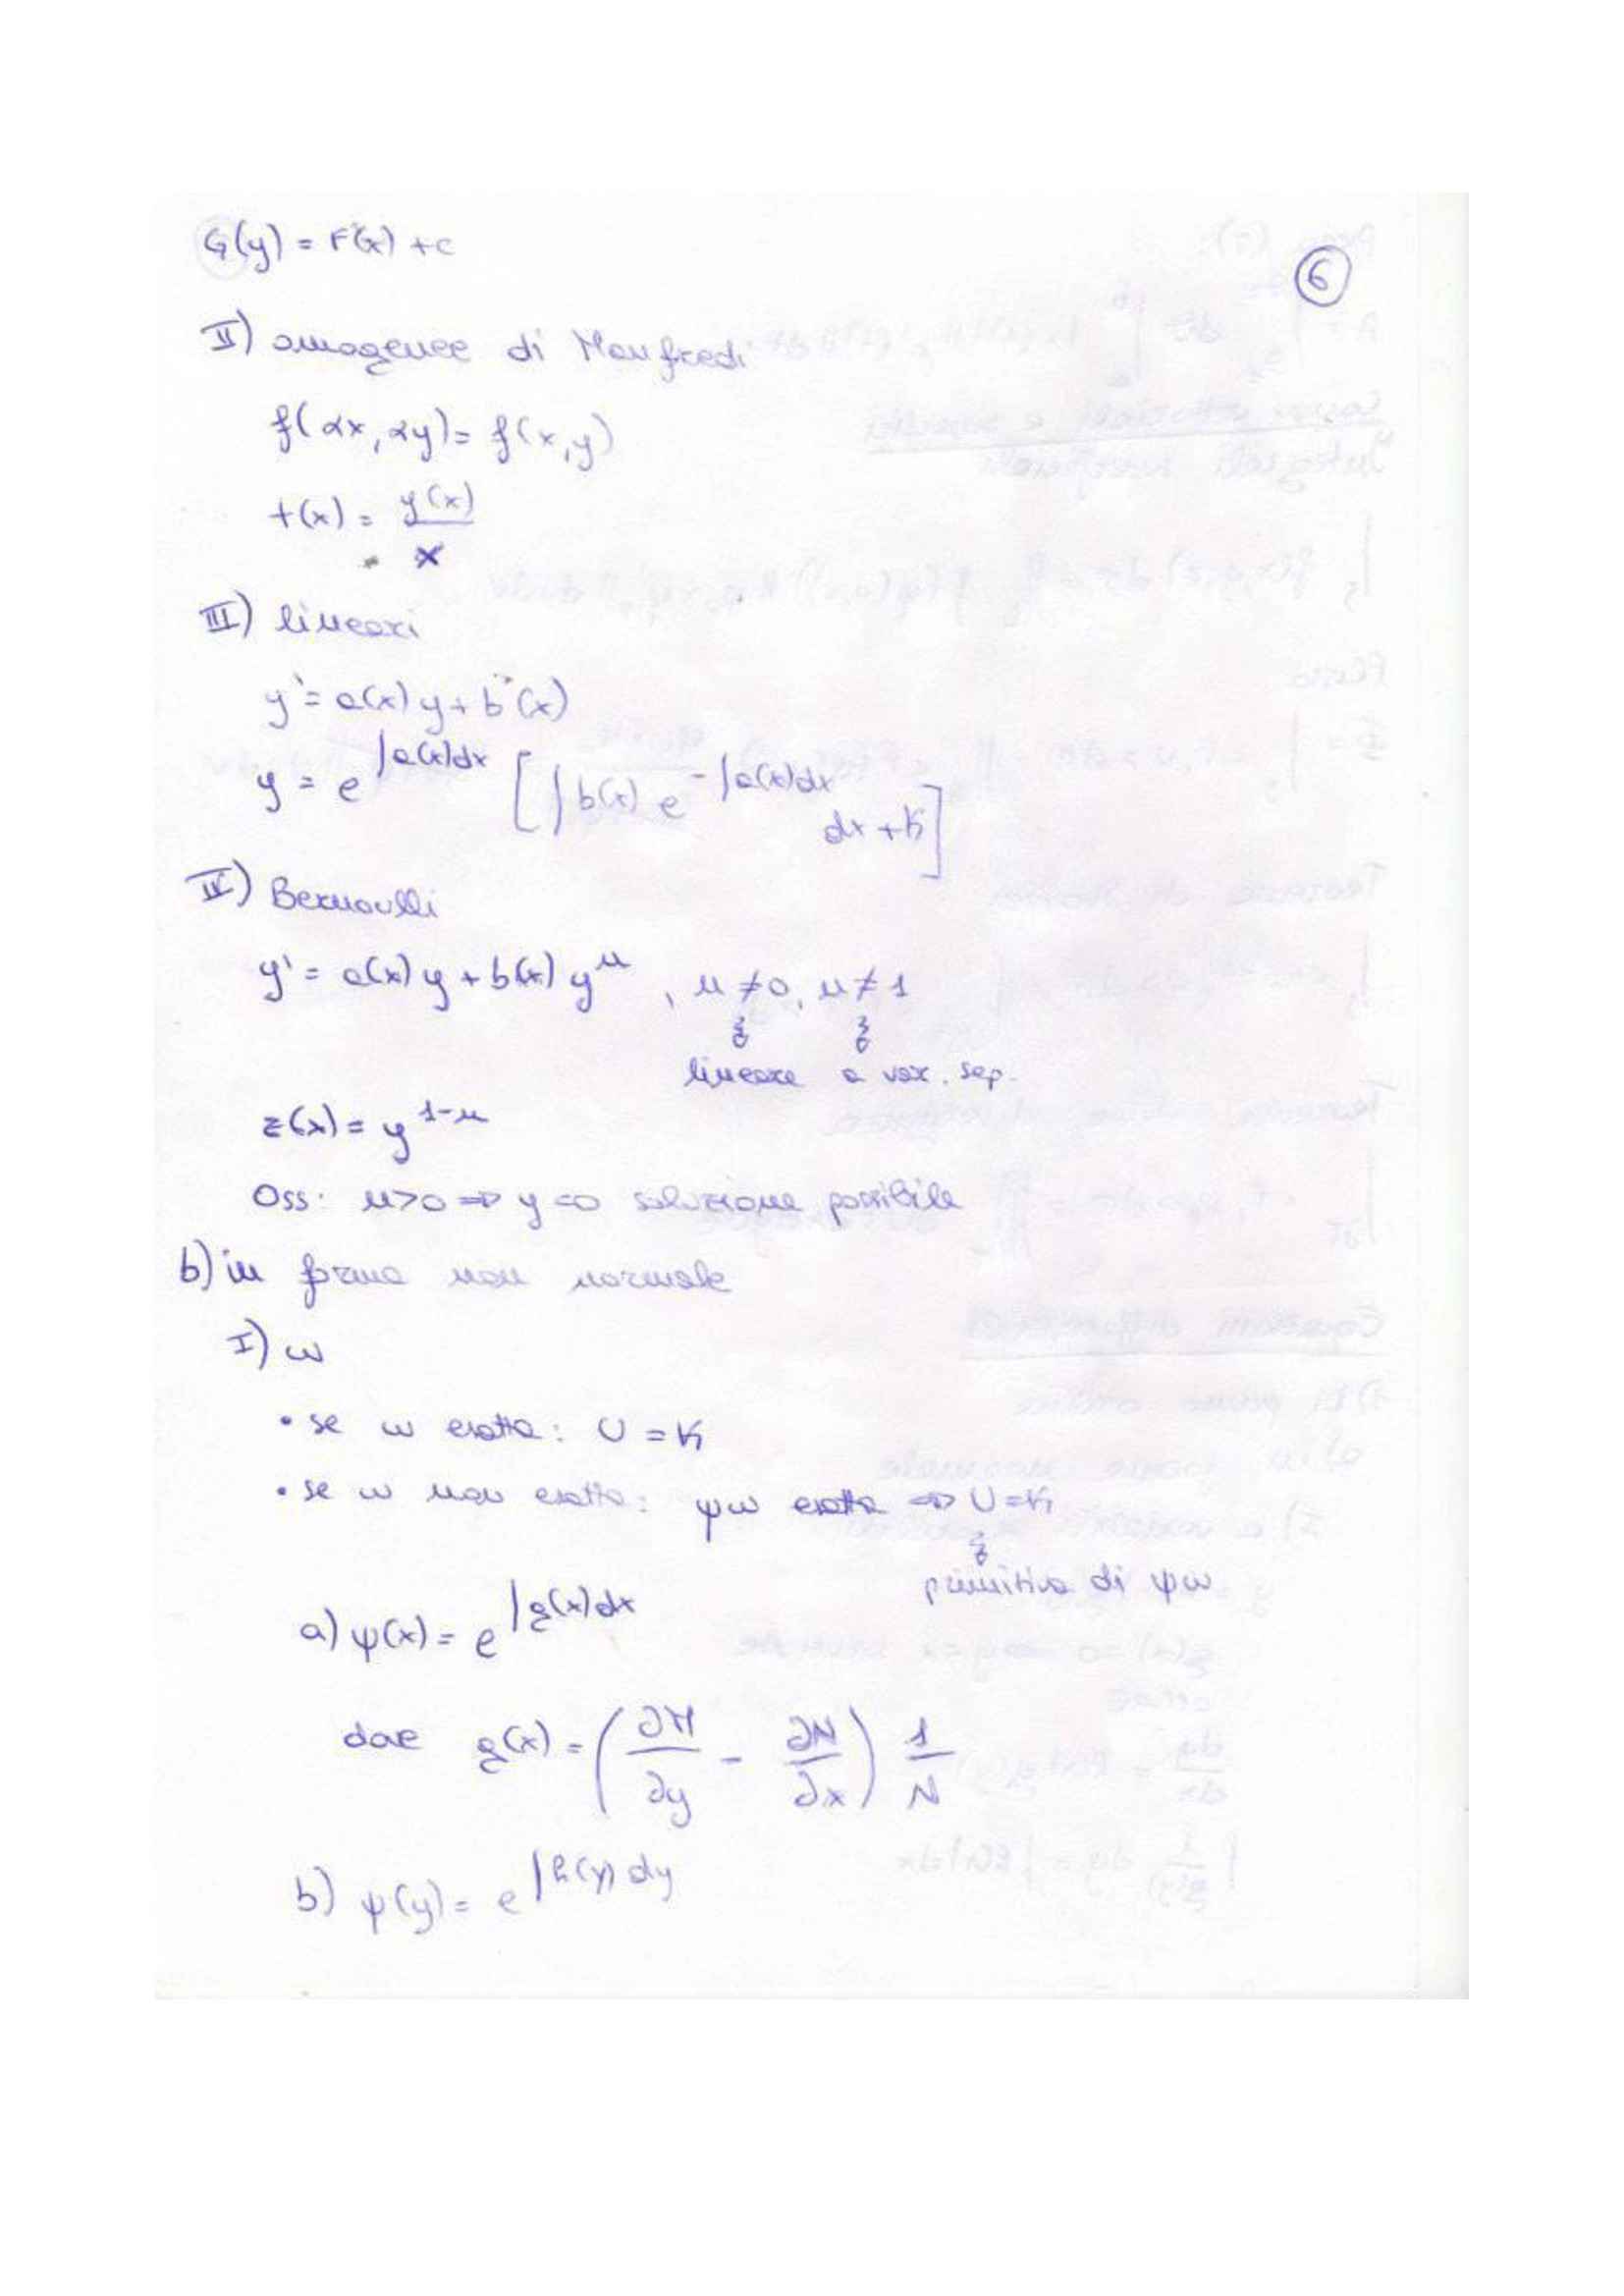 G(y) = F(x) + c
6
II) omogenee di Manfredi
f(αx, αy) = f(x, y)
t(x) = y(x) / x
III) lineari
y' = a(x) y + b(x)
y = e^{∫a(x)dx} [∫ b(x) e^{-∫a(x)dx} dx + k]
IV) Bernoulli
y' = a(x) y + b(x) y^n , n ≠ 0, n ≠ 1
lineare a var. sep.
z(x) = y^{1-n}
Oss: n>0 ⇒ y=0 soluzione possibile
b) in forma non normale
I) ω
• se ω esatta: U = k
• se ω non esatta: ψω esatta ⇒ U = k
primitiva di ψω
a) ψ(x) = e^{∫g(x)dx}
dove g(x) = (∂M/∂y - ∂N/∂x) 1/N
b) ψ(y) = e^{∫h(y)dy}